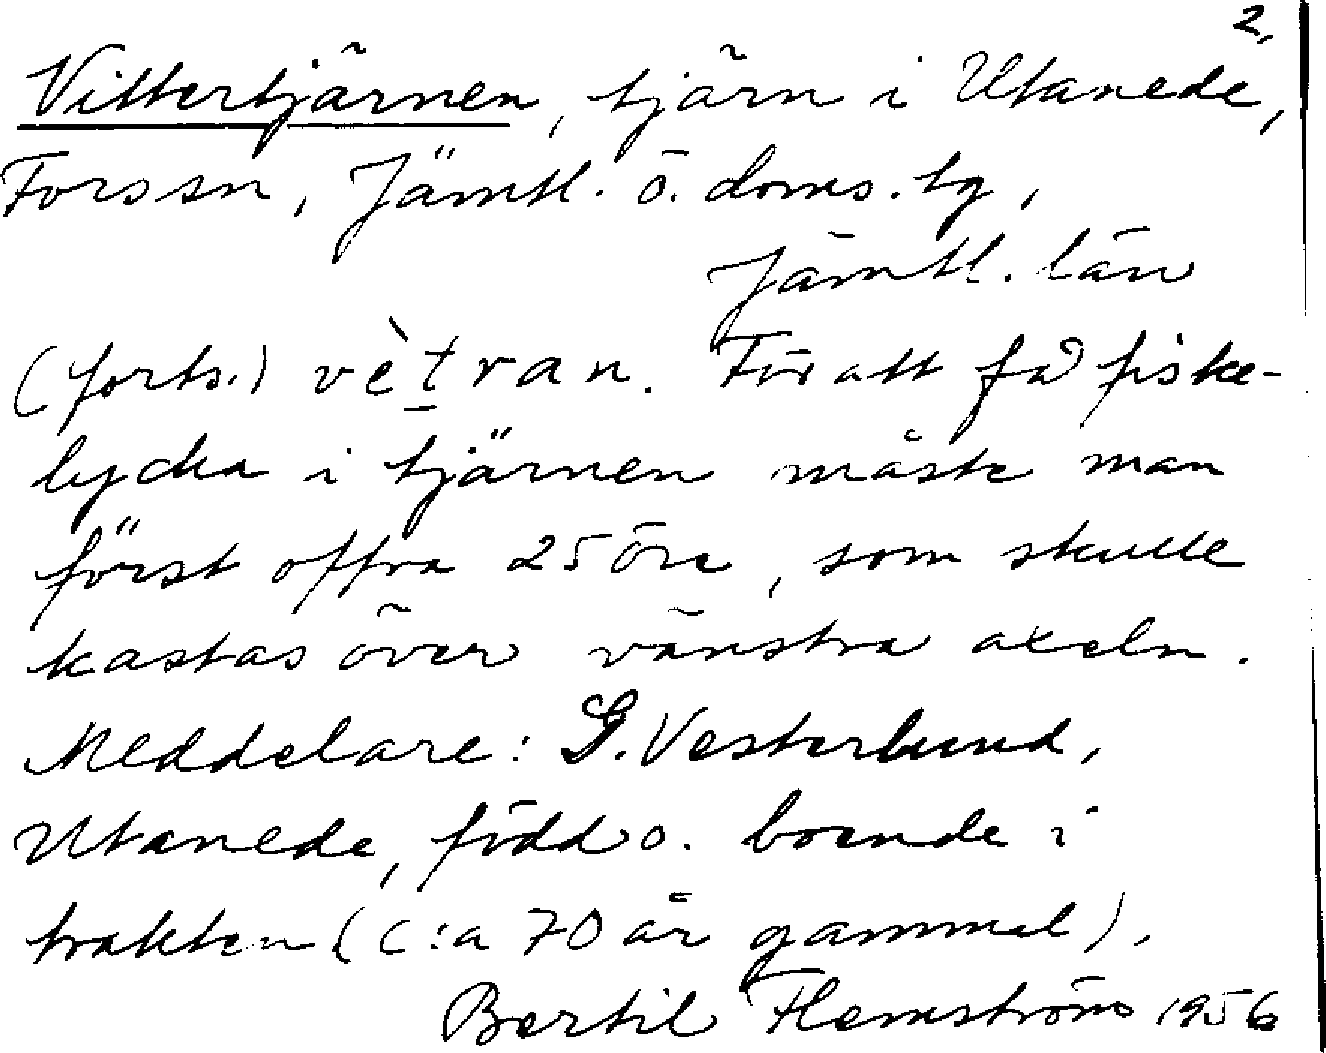 2.
Vittertjärnen, tjärn i Utanede,
Fors sn, Jämtl. ö. doms. lg,
Jämtl. län
(forts.) vètran. För att få fiske-
lycka i tjärnen måste man
först offra 25 öre, som skulle
kastas över vänstra axeln.
Meddelare: G. Vesterlund,
Utanede, född o. boende i
trakten (c:a 70 år gammal).
Bertil Flemström 1956